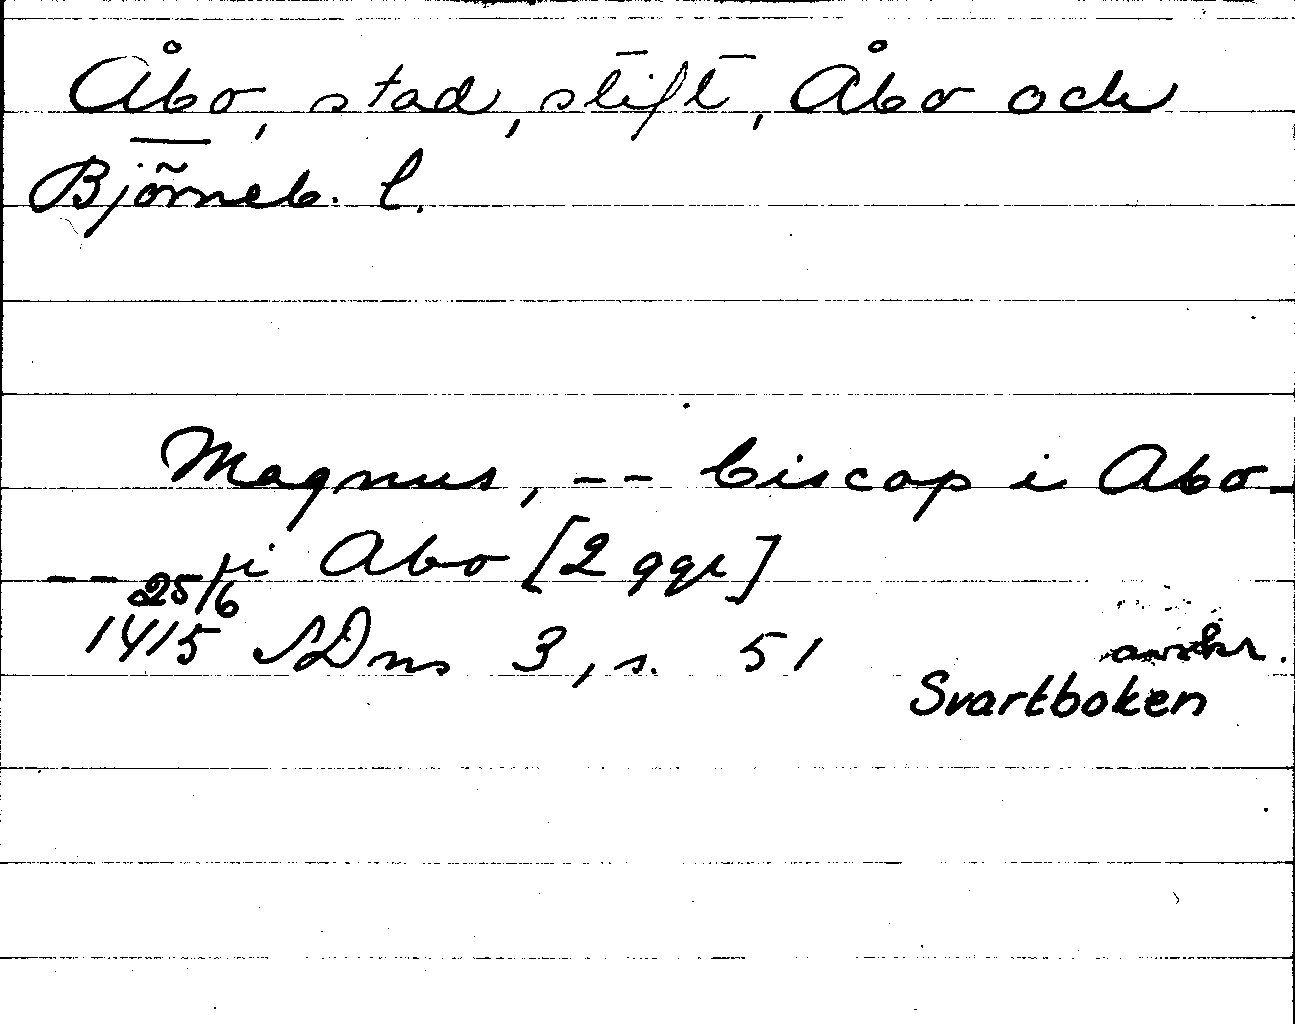 Åbo, stad, stift, Åbo och
Björneb. l.
Magnus, -- biscop i Abo -
-- i Abo [2 ggr]
25/6
1415 SDns 3, s. 51 avskr.
Svartboken